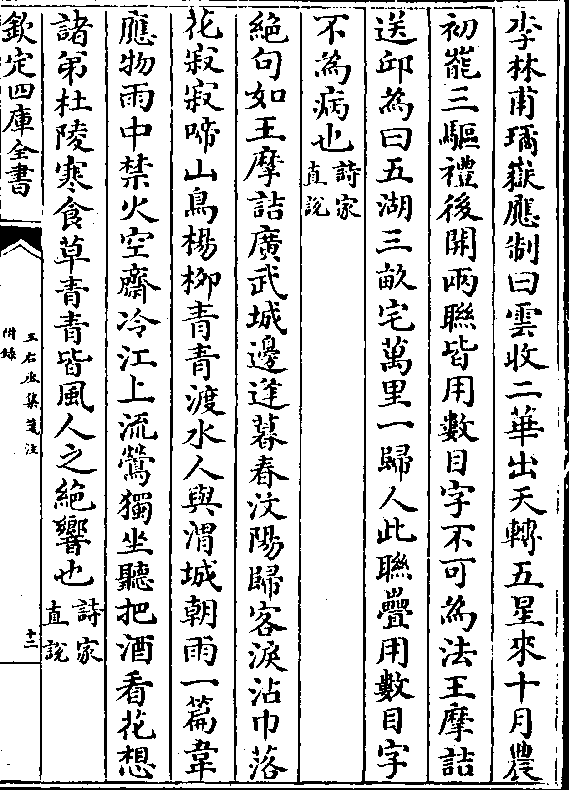 李林甫瑀嶽應制曰雲收二華出天轉五星來十月農
初罷三驅禮後開兩聯皆用數目字不可為法王摩詰
送邱為曰五湖三畝宅萬里一歸人此聯疊用數目字
不為病也詩家直說
絕句如王摩詰廣武城邊逢暮春汶陽歸客淚沾巾落
花寂寂啼山鳥楊柳青青渡水人與渭城朝雨一篇韋
應物雨中禁火空齋冷江上流鶯獨坐聽把酒看花想
諸弟杜陵寒食草青青皆風人之絕響也詩家直說
欽定四庫全書
王右丞集箋注
附錄
十二